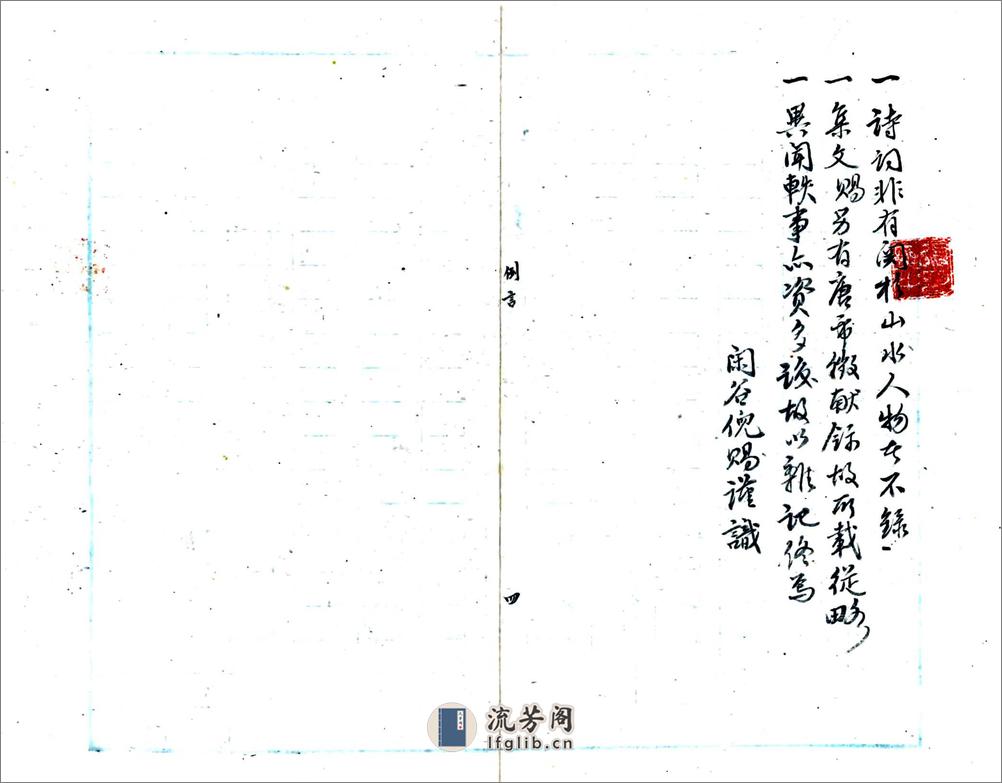 一 詩詞非有関於山水人物者不錄
一 集文賜另有唐市徵献錄故所載從略
一 異聞軼事亦資多識故以雜記終焉
閑谷倪賜謹識
例言
四
流芳阁
lfglib.cn